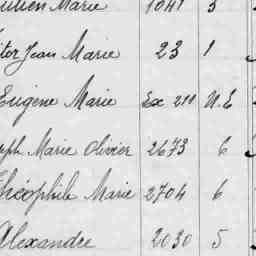 Julien Marie 1041 3
Victor Jean Marie 23 1
Eugène Marie Ex 210 N.E
Joseph Marie Olivier 2673 6
Théophile Marie 2704 6
Alexandre 2030 5